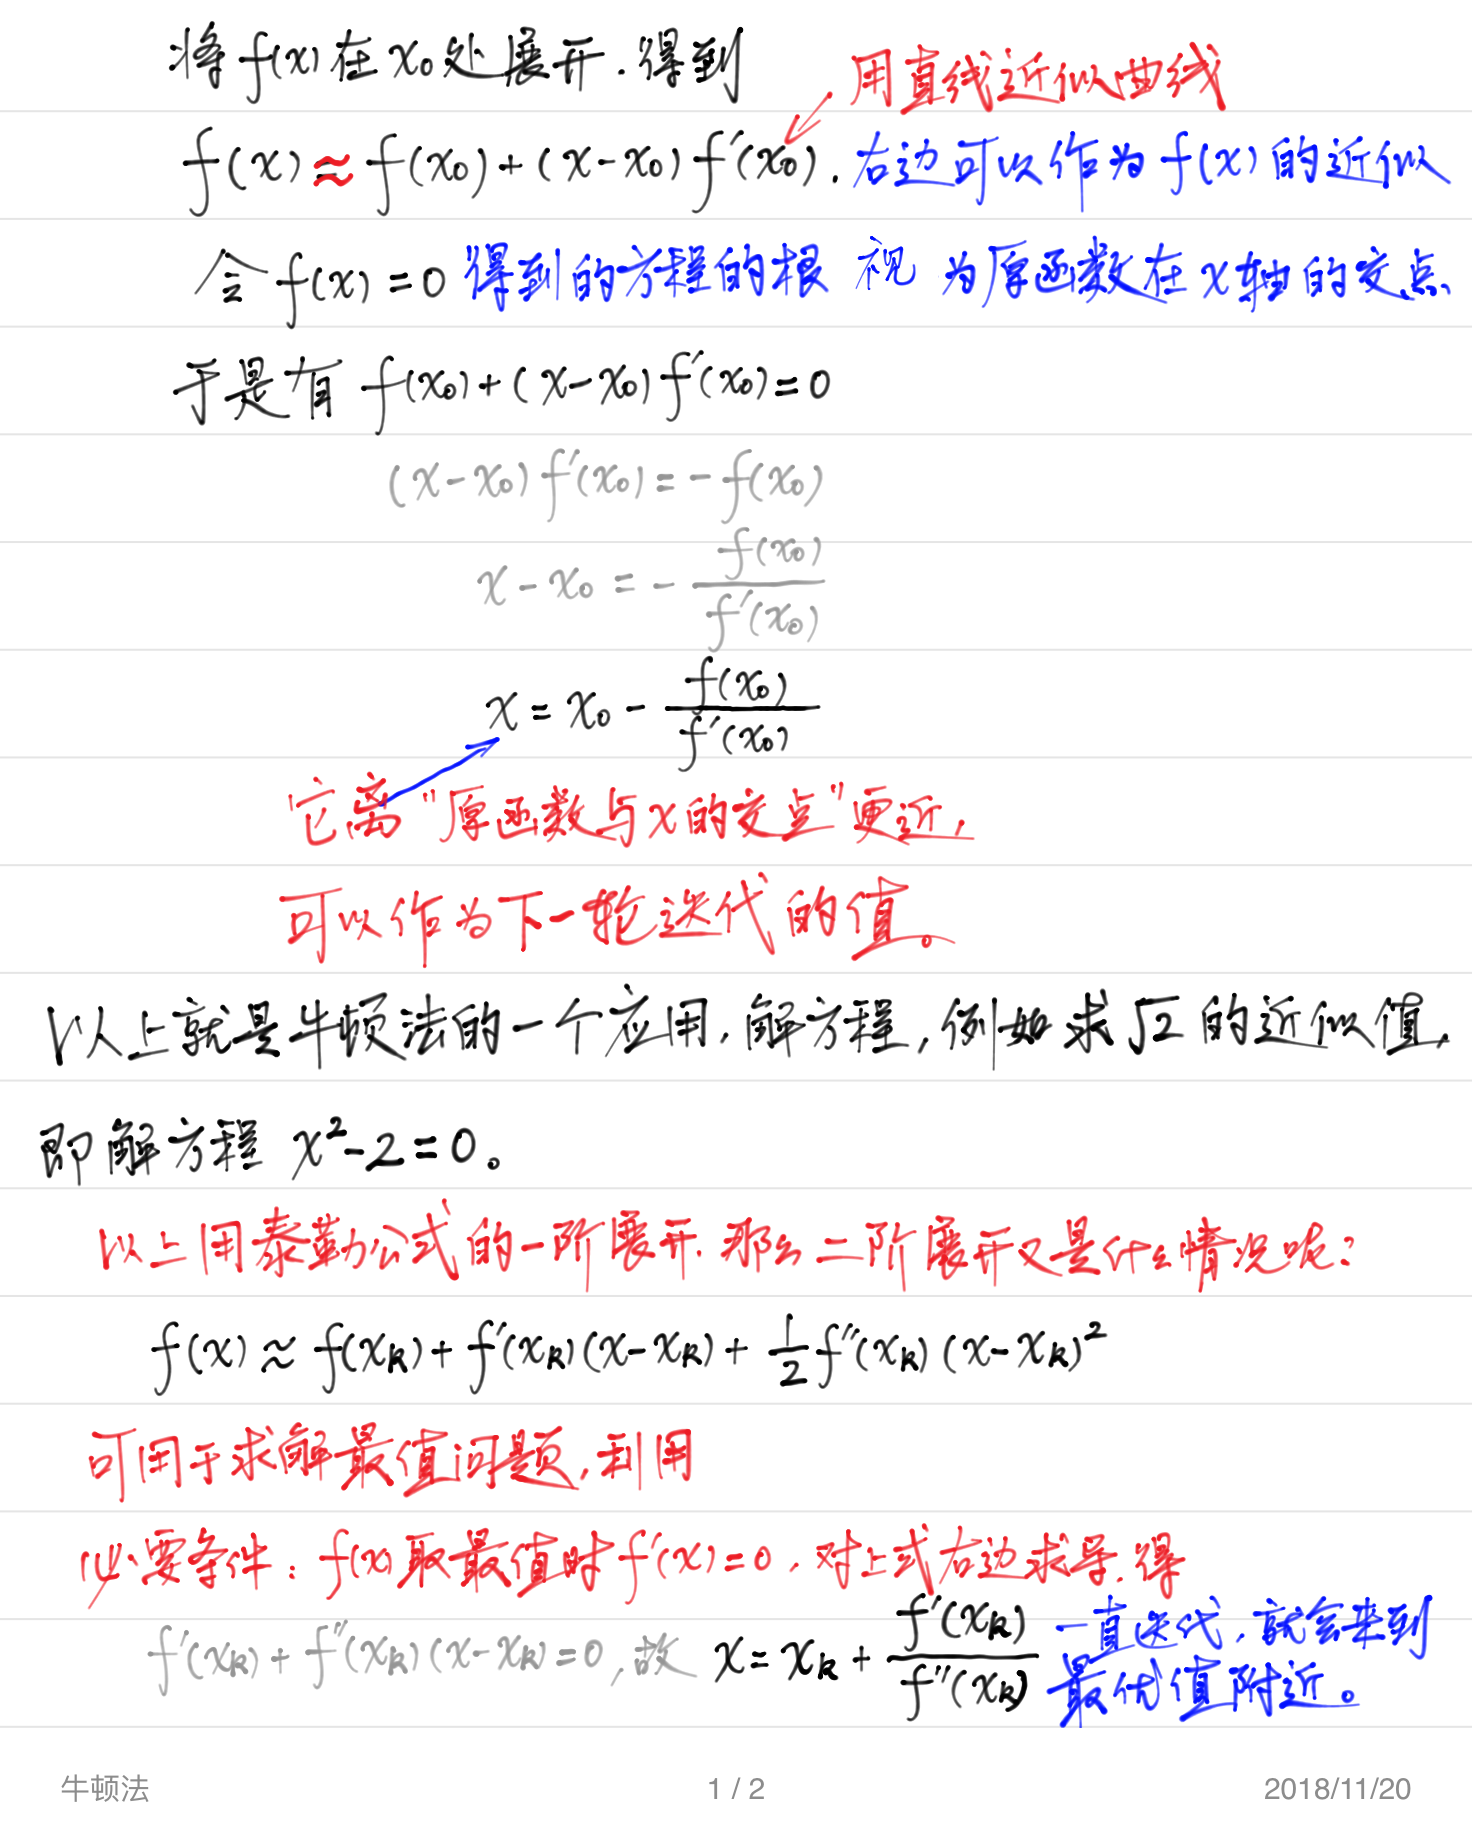 将 f(x) 在 x₀ 处展开.得到
用直线近似曲线
f(x) ≈ f(x₀) + (x-x₀) f′(x₀). 右边可以作为 f(x) 的近似
令 f(x) = 0 得到的方程的根 视为原函数在 x 轴的交点
于是有 f(x₀) + (x-x₀) f′(x₀) = 0
(x-x₀) f′(x₀) = - f(x₀)
x - x₀ = - f(x₀) / f′(x₀)
x = x₀ - f(x₀) / f′(x₀)
它离“原函数与x的交点”更近,
可以作为下一轮迭代的值。
以上就是牛顿法的一个应用,解方程,例如求√2 的近似值,
即解方程 x²-2=0。
以上用泰勒公式的一阶展开.那么二阶展开又是什么情况呢?
f(x) ≈ f(xₖ) + f′(xₖ)(x-xₖ) + 1/2 f″(xₖ) (x-xₖ)²
可用于求解最值问题,利用
必要条件: f(x) 取最值时 f′(x)=0,对上式右边求导.得
f′(xₖ) + f″(xₖ)(x-xₖ)=0,故 x = xₖ + f′(xₖ) / f″(xₖ) 一直迭代,就会来到
最优值附近。
牛顿法 1 / 2 2018/11/20